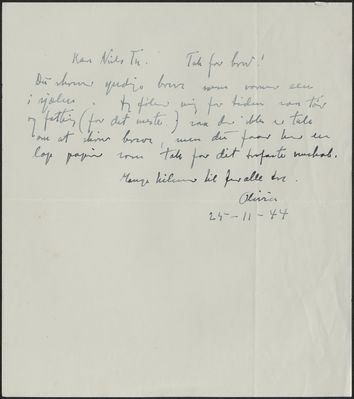 Kære Niels Th. Tak for brev!
Du skriver yndige breve som varmer een
i sjælen. Jeg føler mig for tiden saa tør
og fattig (for det meste) saa der ikke er tale
om at skrive breve, men du faar her en
lap papir som tak for dit trofaste venskab.
Mange hilsner til
Olivia
25-11-44